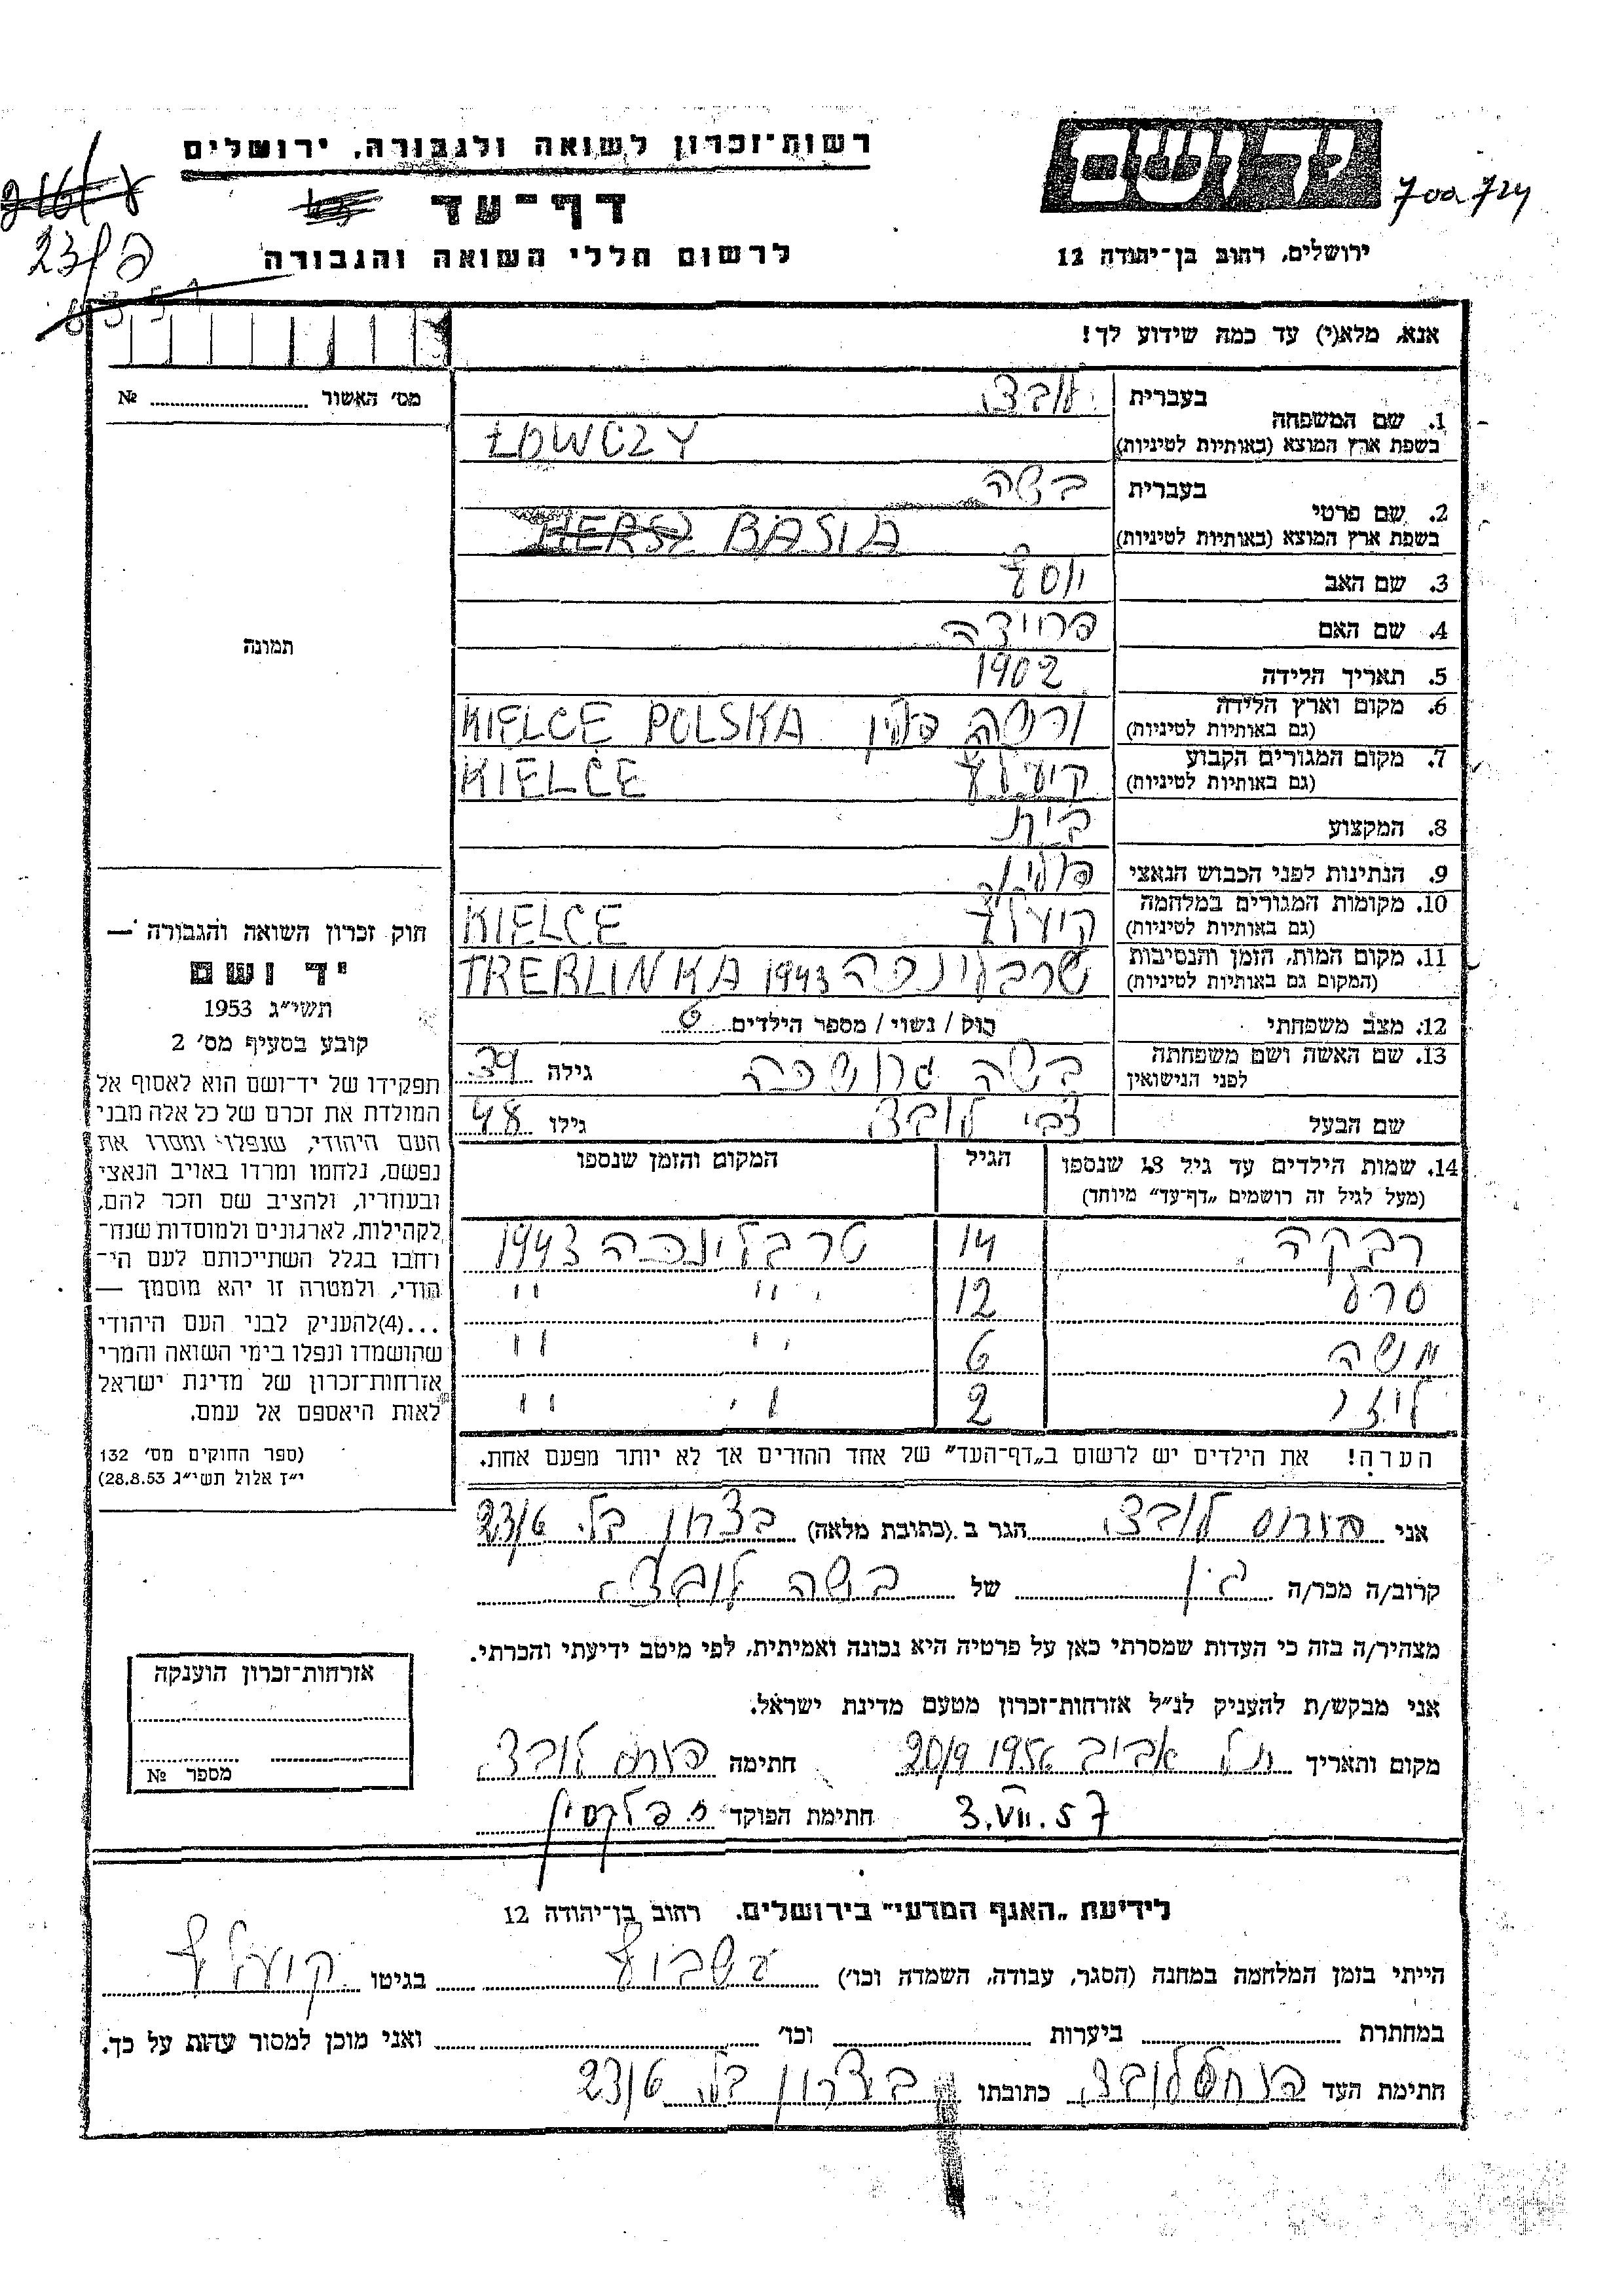 רשות־זכרון לשואה ולגבורה, ירושלים
יד ושם
700 724
דף־עד
23/פ
לרשום חללי השואה והגבורה
ירושלים, רחוב בן־יהודה 12
אנא, מלא(י) עד כמה שידוע לך!
מס׳ האשור № 
1. שם המשפחה בעברית לובצי
בשפת ארץ המוצא (באותיות לטיניות) ŁOWCZY
2. שם פרטי בעברית בשה
בשפת ארץ המוצא (באותיות לטיניות) HERSZ BASIA
3. שם האב יוסף
4. שם האם פריידה
5. תאריך הלידה 1902
6. מקום וארץ הלידה (גם באותיות לטיניות) ורשה פולין KIELCE POLSKA
7. מקום המגורים הקבוע (גם באותיות לטיניות) קיעלץ KIELCE
8. המקצוע בית
9. הנתינות לפני הכבוש הנאצי
10. מקומות המגורים במלחמה (גם באותיות לטיניות) קיעלץ KIELCE
11. מקום המות, הזמן והנסיבות (המקום גם באותיות לטיניות) 1943 TREBLINKA
12. מצב משפחתי רוק / נשוי / מספר הילדים 6
13. שם האשה ושם משפחתה לפני הנישואין בשה גילה 39
שם הבעל צבי לובצי גילו 48
14. שמות הילדים עד גיל 18 שנספו (מעל לגיל זה רושמים „דף־עד״ מיוחד) הגיל המקום והזמן שנספו
רבקה 14 טרבלינכה 1943
סרל 12 " "
משה 6 " "
לייזר 2 " "
הערה! את הילדים יש לרשום ב„דף־העד״ של אחד ההורים אך לא יותר מפעם אחת.
תמונה
חוק זכרון השואה והגבורה —
יד ושם
תשי״ג 1953
קובע בסעיף מס׳ 2
תפקידו של יד־ושם הוא לאסוף אל
המולדת את זכרם של כל אלה מבני
העם היהודי, שנפלו ומסרו את
נפשם, נלחמו ומרדו באויב הנאצי
ובעוזריו, ולהציב שם וזכר להם,
לקהילות, לארגונים ולמוסדות שנח־
רחבו בגלל השתייכותם לעם הי־
הודי, ולמטרה זו יהא מוסמך —
...(4)להעניק לבני העם היהודי
שהושמדו ונפלו בימי השואה והמרי
אזרחות־זכרון של מדינת ישראל
לאות היאספם אל עמם.
(ספר החוקים מס׳ 132
י״ז אלול תשי״ג 28.8.53)
אני לובצי הגר ב (כתובת מלאה) בצרון בל. 23/6
קרוב/ה מכר/ה בן של בשה לובצי
מצהיר/ה בזה כי העדות שמסרתי כאן על פרטיה היא נכונה ואמיתית, לפי מיטב ידיעתי והכרתי.
אני מבקש/ת להעניק לנ״ל אזרחות־זכרון מטעם מדינת ישראל.
מקום ותאריך תל אביב 20/9 1956 חתימה לובצי
3.VII.57 חתימת הפוקד
אזרחות־זכרון הוענקה
מספר №
לידיעת „האגף המדעי״ בירושלים. רחוב בן־יהודה 12
הייתי בזמן המלחמה במחנה (הסגר, עבודה, השמדה וכו׳) בגיטו קיעלץ
במחתרת ביערות וכו׳ ואני מוכן למסור עדות על כך.
חתימת העד לובצי כתובתו ביצרון בל. 23/6